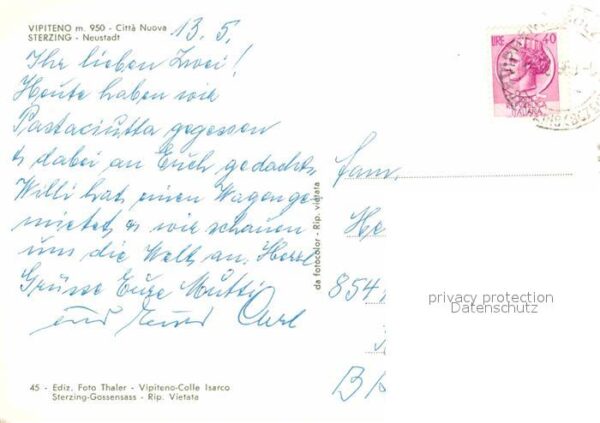 VIPITENO m. 950 - Città Nuova
STERZING - Neustadt
13. 5.
Ihr lieben Zwei!
Heute haben wir
Pastaciutta gegessen
& dabei an Euch gedacht.
Willi hat einen Wagen ge-
mietet & wir schauen
uns die Welt an. Herzl
Grüsse Eure Mutti
und
LIRE 40
Fam.
He
854
B
privacy protection
Datenschutz
da fotocolor - Rip. vietata
45 - Ediz. Foto Thaler - Vipiteno-Colle Isarco
Sterzing-Gossensass - Rip. Vietata